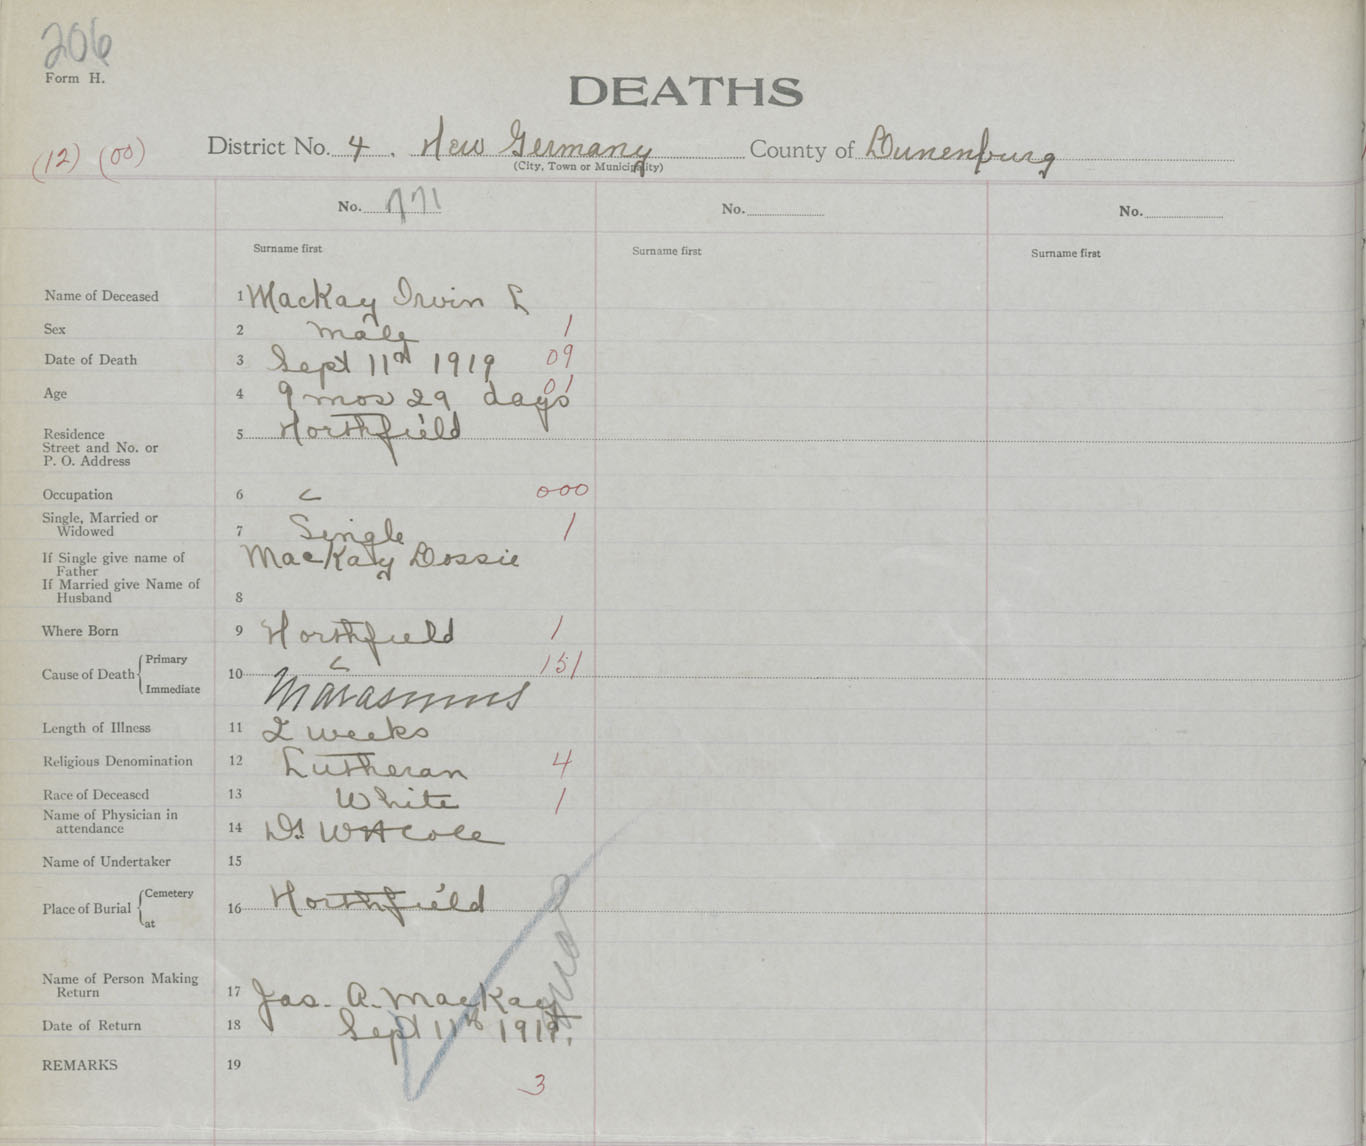 206
Form H.
DEATHS
(12) (00)
District No. 4. New Germany County of Lunenburg
(City, Town or Municipality)
No. 771 No. No.
Surname first Surname first Surname first
Name of Deceased 1 MacKay Irvin L
Sex 2 Male 1
Date of Death 3 Sept 11th 1919 09
Age 4 9 mos 29 days 01
Residence 5 Northfield
Street and No. or
P. O. Address
Occupation 6 000
Single, Married or
Widowed 7 Single 1
If Single give name of MacKay Dossie
Father
If Married give Name of
Husband 8
Where Born 9 Northfield 1
Cause of Death Primary 151
10
Immediate Marasmus
Length of Illness 11 2 weeks
Religious Denomination 12 Lutheran 4
Race of Deceased 13 White 1
Name of Physician in
attendance 14 Dr W H Cole
Name of Undertaker 15
Place of Burial Cemetery 16 Northfield
at
Name of Person Making
Return 17 Jas. A. MacKay
Date of Return 18 Sept 11th 1919.
REMARKS 19
3